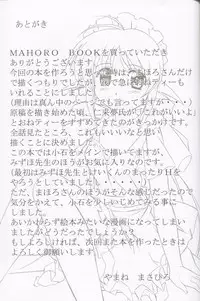 あとがき
MAHORO BOOKを買っていただき
ありがとうございます。
今回の本を作ろうと思った時は まほろさんだけ
で描くつもりでしたが 急に ティーも
いれることにしました。
(理由は真ん中のページでも言ってますが・・・)
原稿を描き始めた頃に、
とおねティーをすすめてきたのがきっかけです。
会話見たところ、これもいいなと思い
描くことに決めました。
この本では小石をメインで描いてますが、
みずほ先生のほうがお気に入りなのです。
(最初はみずほ先生とけいくんのまったりHを
やろうとしていました・・・)
ただ、まほろさんのほうがそんな感じだったので
気分をかえて、小石を少しいじめてみる事に
しました。
あいかわらず絵本みたいな漫画になってしまい
ましたがどうだったでしょうか？
もしよろしければ、次回また本を作ったときは
よろしく御願いします。
やまね まさひろ